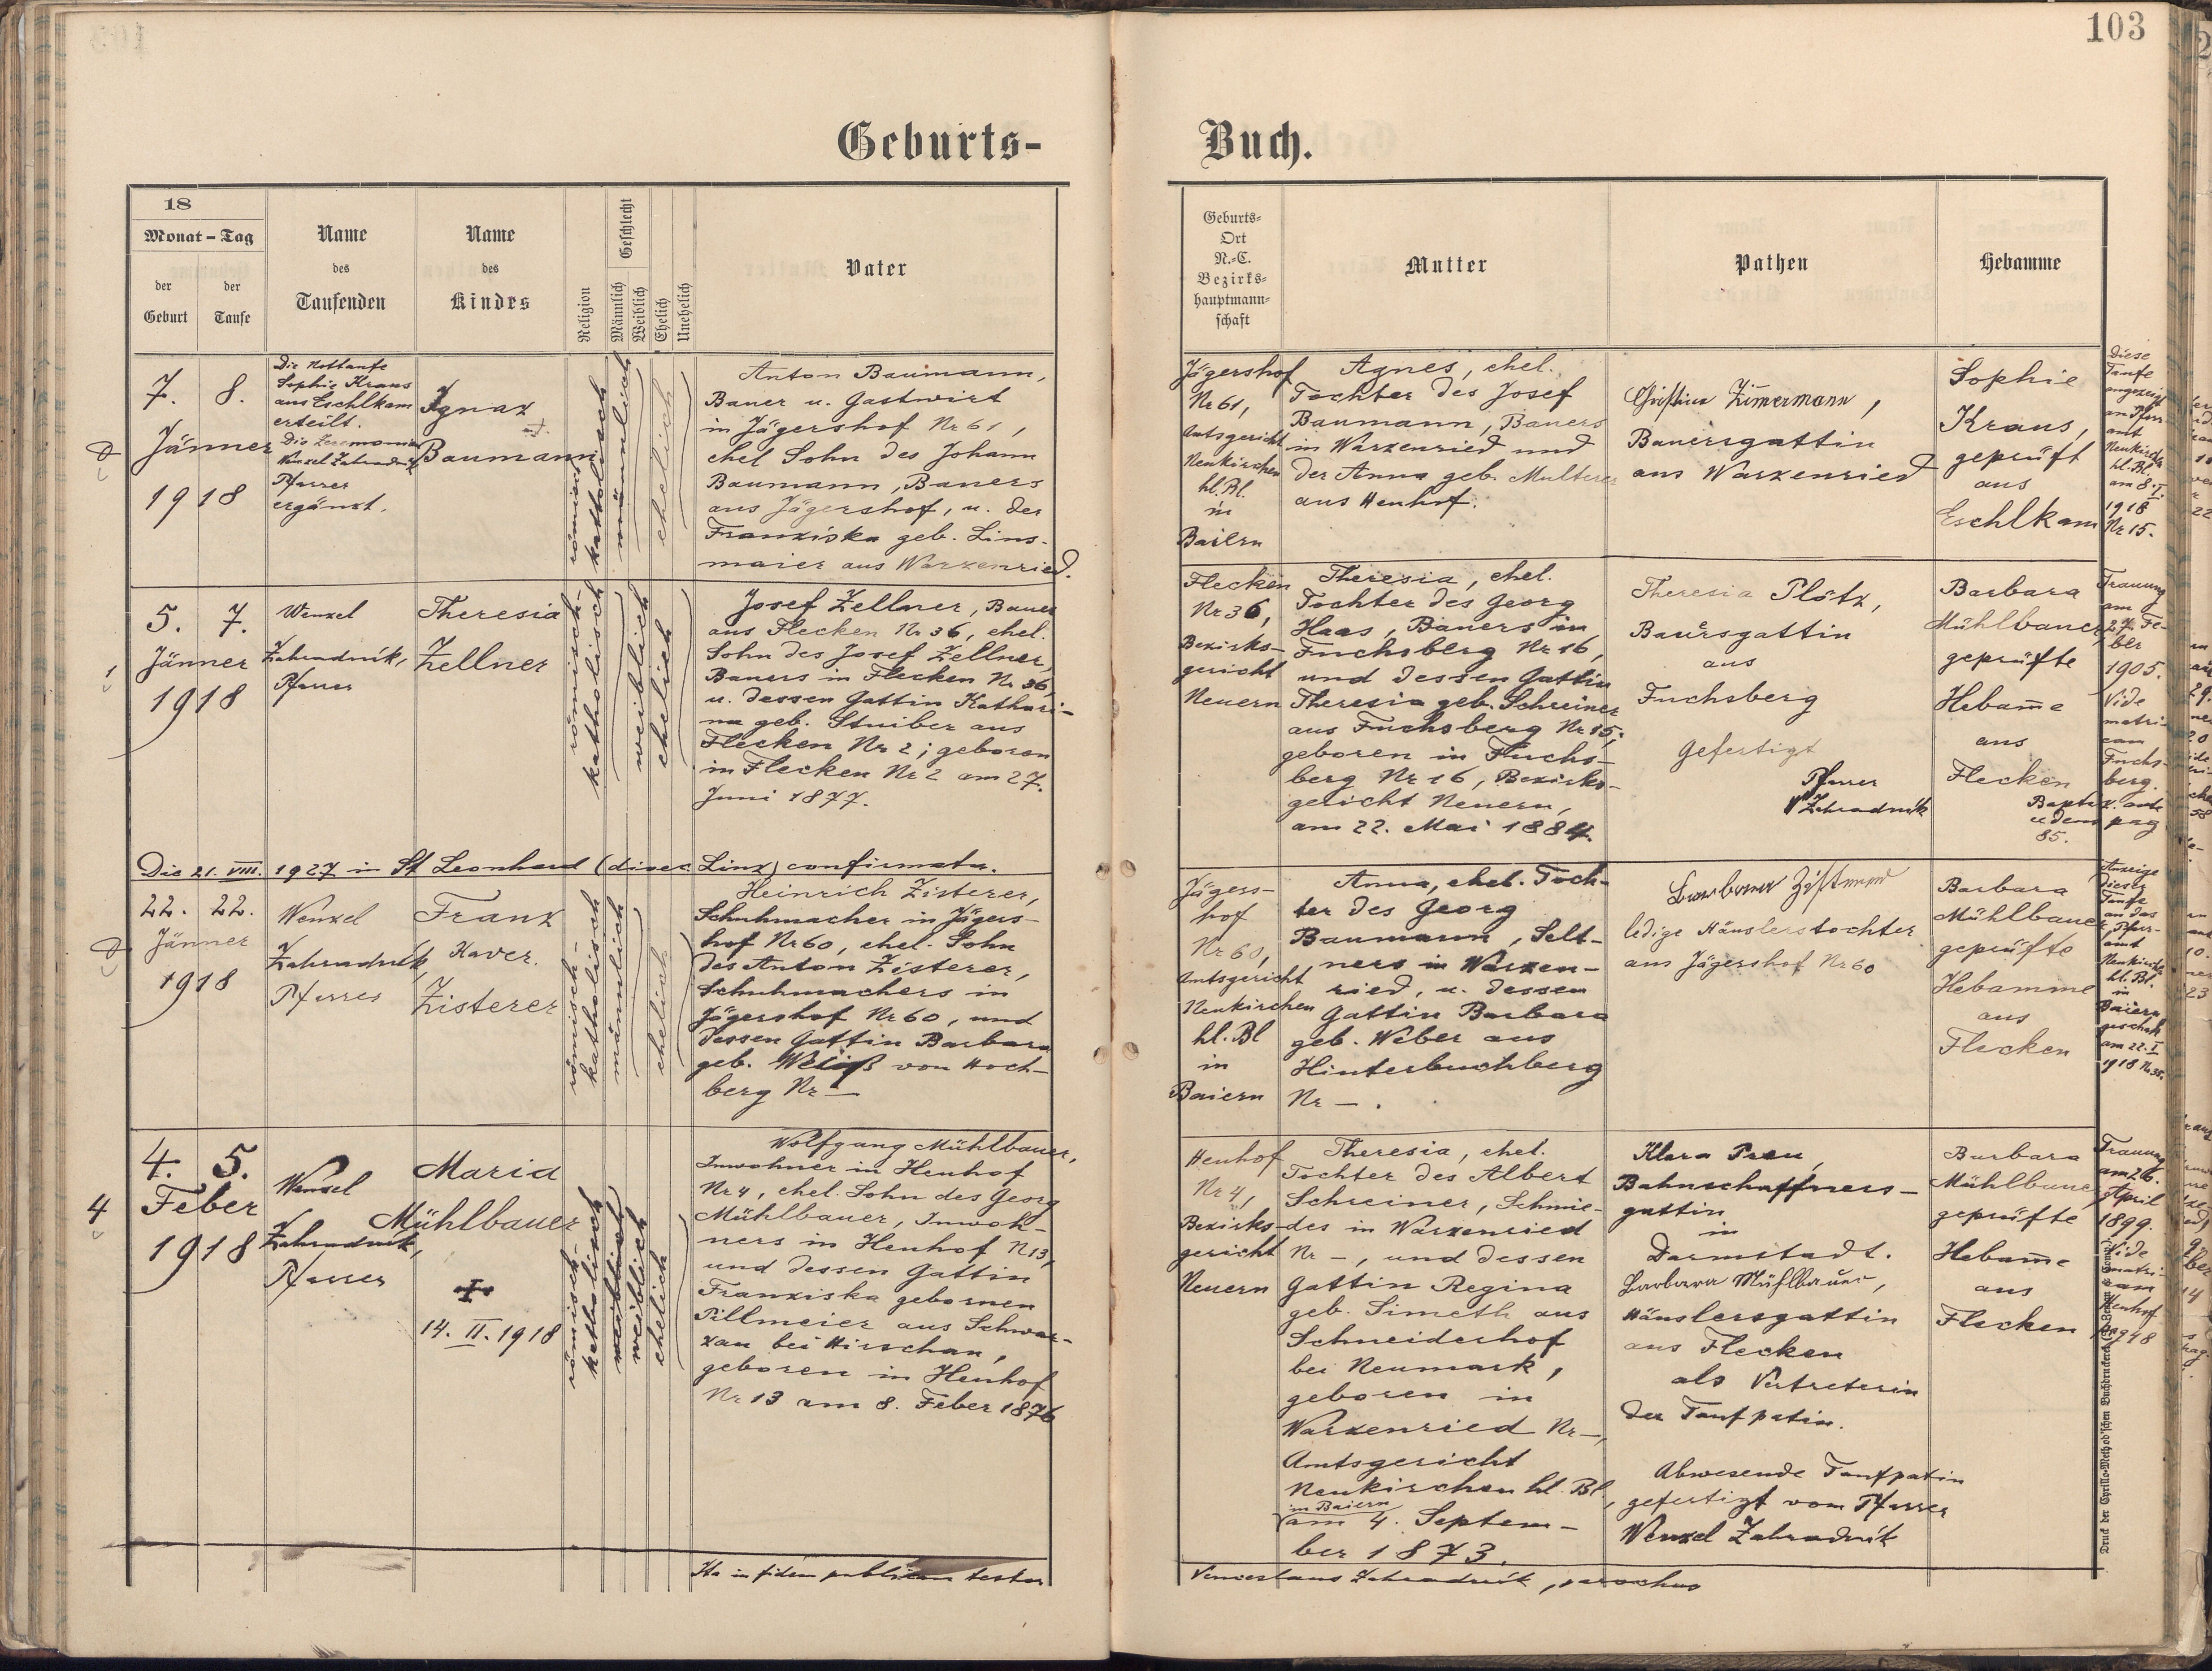 103
Geburts-
Buch.
18
Monat - Tag
der
Geburt
der
Taufe
Name
des
Taufenden
Name
des
Kindes
Religion
Geschlecht
Männlich
Weiblich
Ehelich
Unehelich
Vater
Geburts-
Ort
N.-C.
Bezirks-
hauptmann-
schaft
Mutter
Pathen
Hebamme
7. 8.
Jänner
1918
Die Nottaufe
Sophie Kraus
aus Eschlkam
erteilt.
Die Zeremonien
Wenzel Zahradník
Pfarrer
ergänzt.
Ignaz
Baumann
römisch
katholisch
männlich
ehelich
Anton Baumann,
Bauer u. Gastwirt
in Jägershof Nr 61,
ehel Sohn des Johann
Baumann, Bauers
aus Jägershof, u. der
Franziska geb. Lins-
maier aus Warzenried.
Jägershof
Nr 61,
Amtsgericht
Neukirchen
hl. Bl.
in
Baiern
Agnes, ehel.
Tochter des Josef
Baumann, Bauers
in Warzenried und
der Anna geb. Multerer
aus Henhof.
Christina Zimermann,
Bauersgattin
aus Warzenried
Sophie
Kraus,
geprüft
aus
Eschlkam
Diese
Taufe
angezeigt
am Pfarr-
amt
Neukirchen
hl. Bl.
am 8. I.
1918
Nr 15.
1
5. 7.
Jänner
1918
Wenzel
Zahradník,
Pfarrer
Theresia
Zellner
römisch-
katholisch
weiblich
ehelich
Josef Zellner, Bauer
aus Flecken Nr 36, ehel.
Sohn des Josef Zellner,
Bauers in Flecken Nr 36,
u. dessen Gattin Kathari-
na geb. Stuiber aus
Flecken Nr 2; geboren
in Flecken Nr 2 am 27.
Juni 1877.
Flecken
Nr 36,
Bezirks-
gericht
Neuern
Theresia, ehel.
Tochter des Georg
Haas, Bauers in
Fuchsberg Nr 16,
und dessen Gattin
Theresia geb. Schreiner
aus Fuchsberg Nr 15;
geboren in Fuchs-
berg Nr 16, Bezirks-
gericht Neuern,
am 22. Mai 1884.
Theresia Plötz,
Bauersgattin
aus
Fuchsberg
Gefertigt
Pfarrer
W Zahradník
Barbara
Mühlbauer,
geprüfte
Hebam̅e
aus
Flecken
Trauung
am
27. Fe-
ber
1905.
Vide
matri-
cam
Fuchs-
berg.
pag
85.
Die 21. VIII. 1927 in St Leonhard (dioec. Linz) confirmata.
22. 22.
Jänner
1918
Wenzel
Zahradník,
Pfarrer
Franz
Xaver.
Zisterer
römisch-
katholisch
männlich
ehelich
Heinrich Zisterer,
Schuhmacher in Jägers-
hof Nr 60, ehel. Sohn
des Anton Zisterer,
Schuhmachers in
Jägershof Nr 60, und
dessen Gattin Barbara
geb. Weiß von Hoch-
berg Nr —
Jägers-
hof
Nr 60,
Amtsgericht
Neukirchen
hl. Bl
in
Baiern
Anna, ehel. Toch-
ter des Georg
Baumann, Selt-
ners in Warzen-
ried, u. dessen
Gattin Barbara
geb. Weber aus
Hinterbuchberg
Nr — .
Barbara Zisterer
ledige Häuslerstochter
aus Jägershof Nr 60
Barbara
Mühlbauer,
geprüfte
Hebamme
aus
Flecken
Anzeige
dieser
Taufe
an das
Pfarr-
amt
Neukirchen
hl. Bl.
in
Baiern
geschah
am 22. I
1918 Nr 35.
4
4. 5.
Feber
1918
Wenzel
Zahradník,
Pfarrer
Maria
Mühlbauer
14. II. 1918
römisch-
katholisch
weiblich
ehelich
Wolfgang Mühlbauer,
Inwohner in Henhof
Nr 4, ehel. Sohn des Georg
Mühlbauer, Inwoh-
ners in Henhof N 13,
und dessen Gattin
Franziska gebornen
Pillmeier aus Schwar-
zau bei Hirschau,
geboren in Henhof
Nr 13 am 8. Feber 1876
Henhof
Nr 4,
Bezirks-
gericht
Neuern
Theresia, ehel.
Tochter des Albert
Schreiner, Schmie-
des in Warzenried
Nr —, und dessen
Gattin Regina
geb. Simeth aus
Schneiderhof
bei Neumark,
geboren in
Warzenried Nr —,
Amtsgericht
Neukirchen hl. Bl,
in Baiern
am 4. Septem-
ber 1873.
Klara Preu,
Bahnschaffners-
gattin
in
Darmstadt.
Barbara Mühlbauer,
Häuslersgattin
aus Flecken
als Vertreterin
der Taufpatin.
Abwesende Taufpatin
gefertigt vom Pfarrer
Wenzel Zahradník
Barbara
Mühlbauer,
geprüfte
Hebam̅e
aus
Flecken
Trauung
am 26.
April
1899.
Vide
matri-
cam
Henhof
pag 48
Ita in fidem publicam testor
Venceslaus Zahradník, parochus
Druck der Cyrillo-Method'schen Buchdruckerei